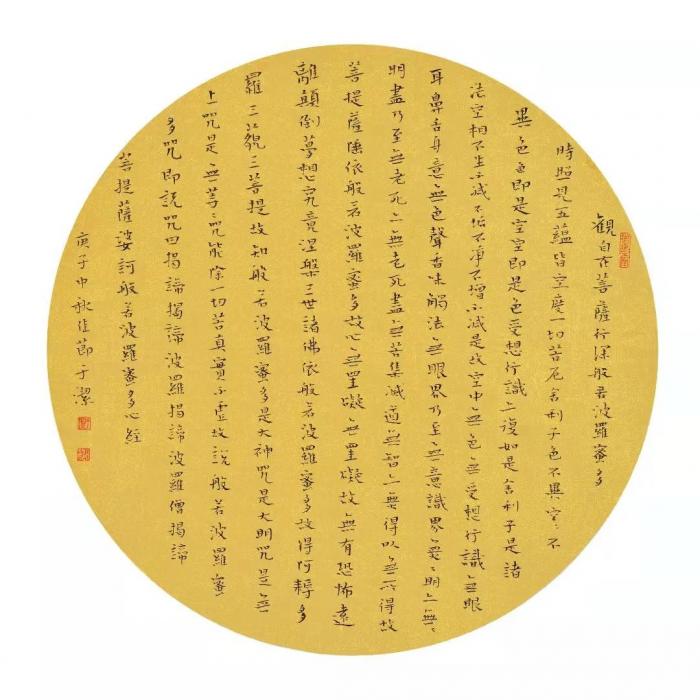 觀自在菩薩行深般若波羅蜜多
時照見五蘊皆空度一切苦厄舍利子色不異空〻不
異色色即是空空即是色受想行識亦復如是舍利子是諸
法空相不生不滅不垢不淨不增不減是故空中無色無受想行識無眼
耳鼻舌身意無色聲香味觸法無眼界乃至無意識界無〻明亦無〻
明盡乃至無老死亦無老死盡無苦集滅道無智亦無得以無所得故
菩提薩埵依般若波羅蜜多故心無罣礙無罣礙故無有恐怖遠
離顛倒夢想究竟涅槃三世諸佛依般若波羅蜜多故得阿耨多
羅三藐三菩提故知般若波羅蜜多是大神咒是大明咒是無
上咒是無等〻咒能除一切苦真實不虛故說般若波羅蜜
多咒即說咒曰揭諦揭諦波羅揭諦波羅僧揭諦
菩提薩婆訶般若波羅蜜多心經
庚子中秋佳節于潔